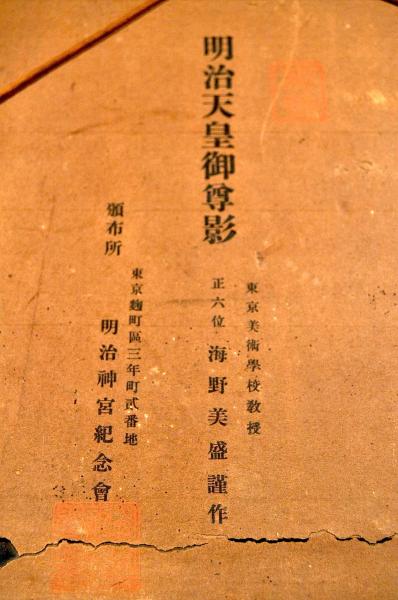 明治天皇御尊影
東京美術學校教授
正六位 海野美盛謹作
頒布所
東京麹町區三年町貳番地
明治神宮紀念會